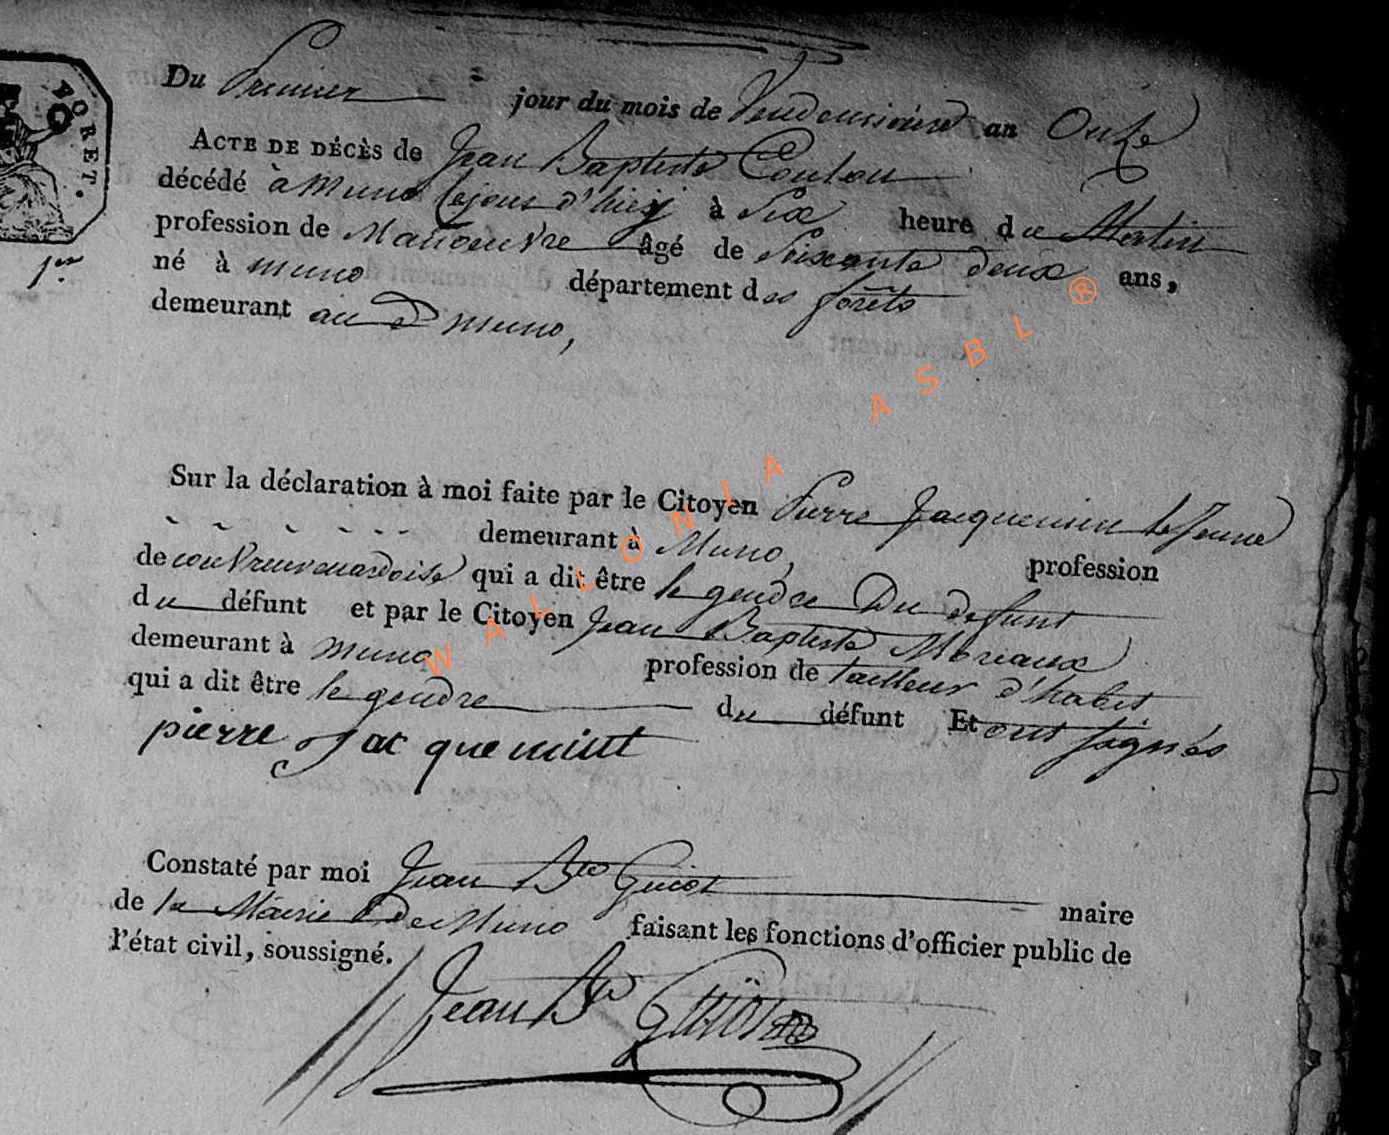 FORET.
1er.
Du Premier jour du mois de Vendemiaire an Onze
ACTE DE DÉCÈS de Jean Baptiste Coulon
décédé à Muno le jour d'hier à Six heure du Matin
profession de Manoeuvre âgé de Soixante deux ans,
né à muno département des forêts
demeurant au d muno,
Sur la déclaration à moi faite par le Citoyen Pierre Jacquemin le Jeune
demeurant à Muno, profession
de couvreur en ardoise qui a dit être le gendre Du defunt
du défunt et par le Citoyen Jean Baptiste Moreaux
demeurant à muno profession de tailleur d'habit
qui a dit être le gendre du défunt Et ont signés
pierre Jacquemint
Constaté par moi Jean Bte Guiot maire
de la Mairie De Muno faisant les fonctions d'officier public de
l'état civil, soussigné.
Jean Bte Guiot
WALLONIA ASBL ®